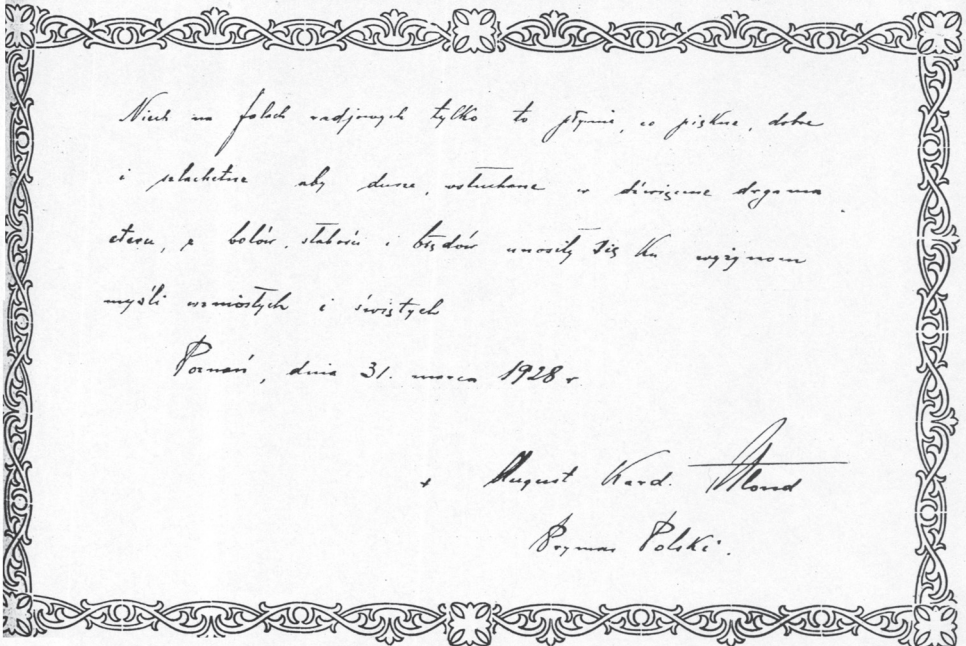 Niech na falach radjowych tylko to płynie, co piękne, dobre
i szlachetne aby dusze, wsłuchane w dźwięczne drgania
eteru, z bólów, słabości i błędów unosiły się ku wyżynom
myśli wzniosłych i świętych
Poznań, dnia 31. marca 1928 r.
+ August Kard. Hlond
Prymas Polski.